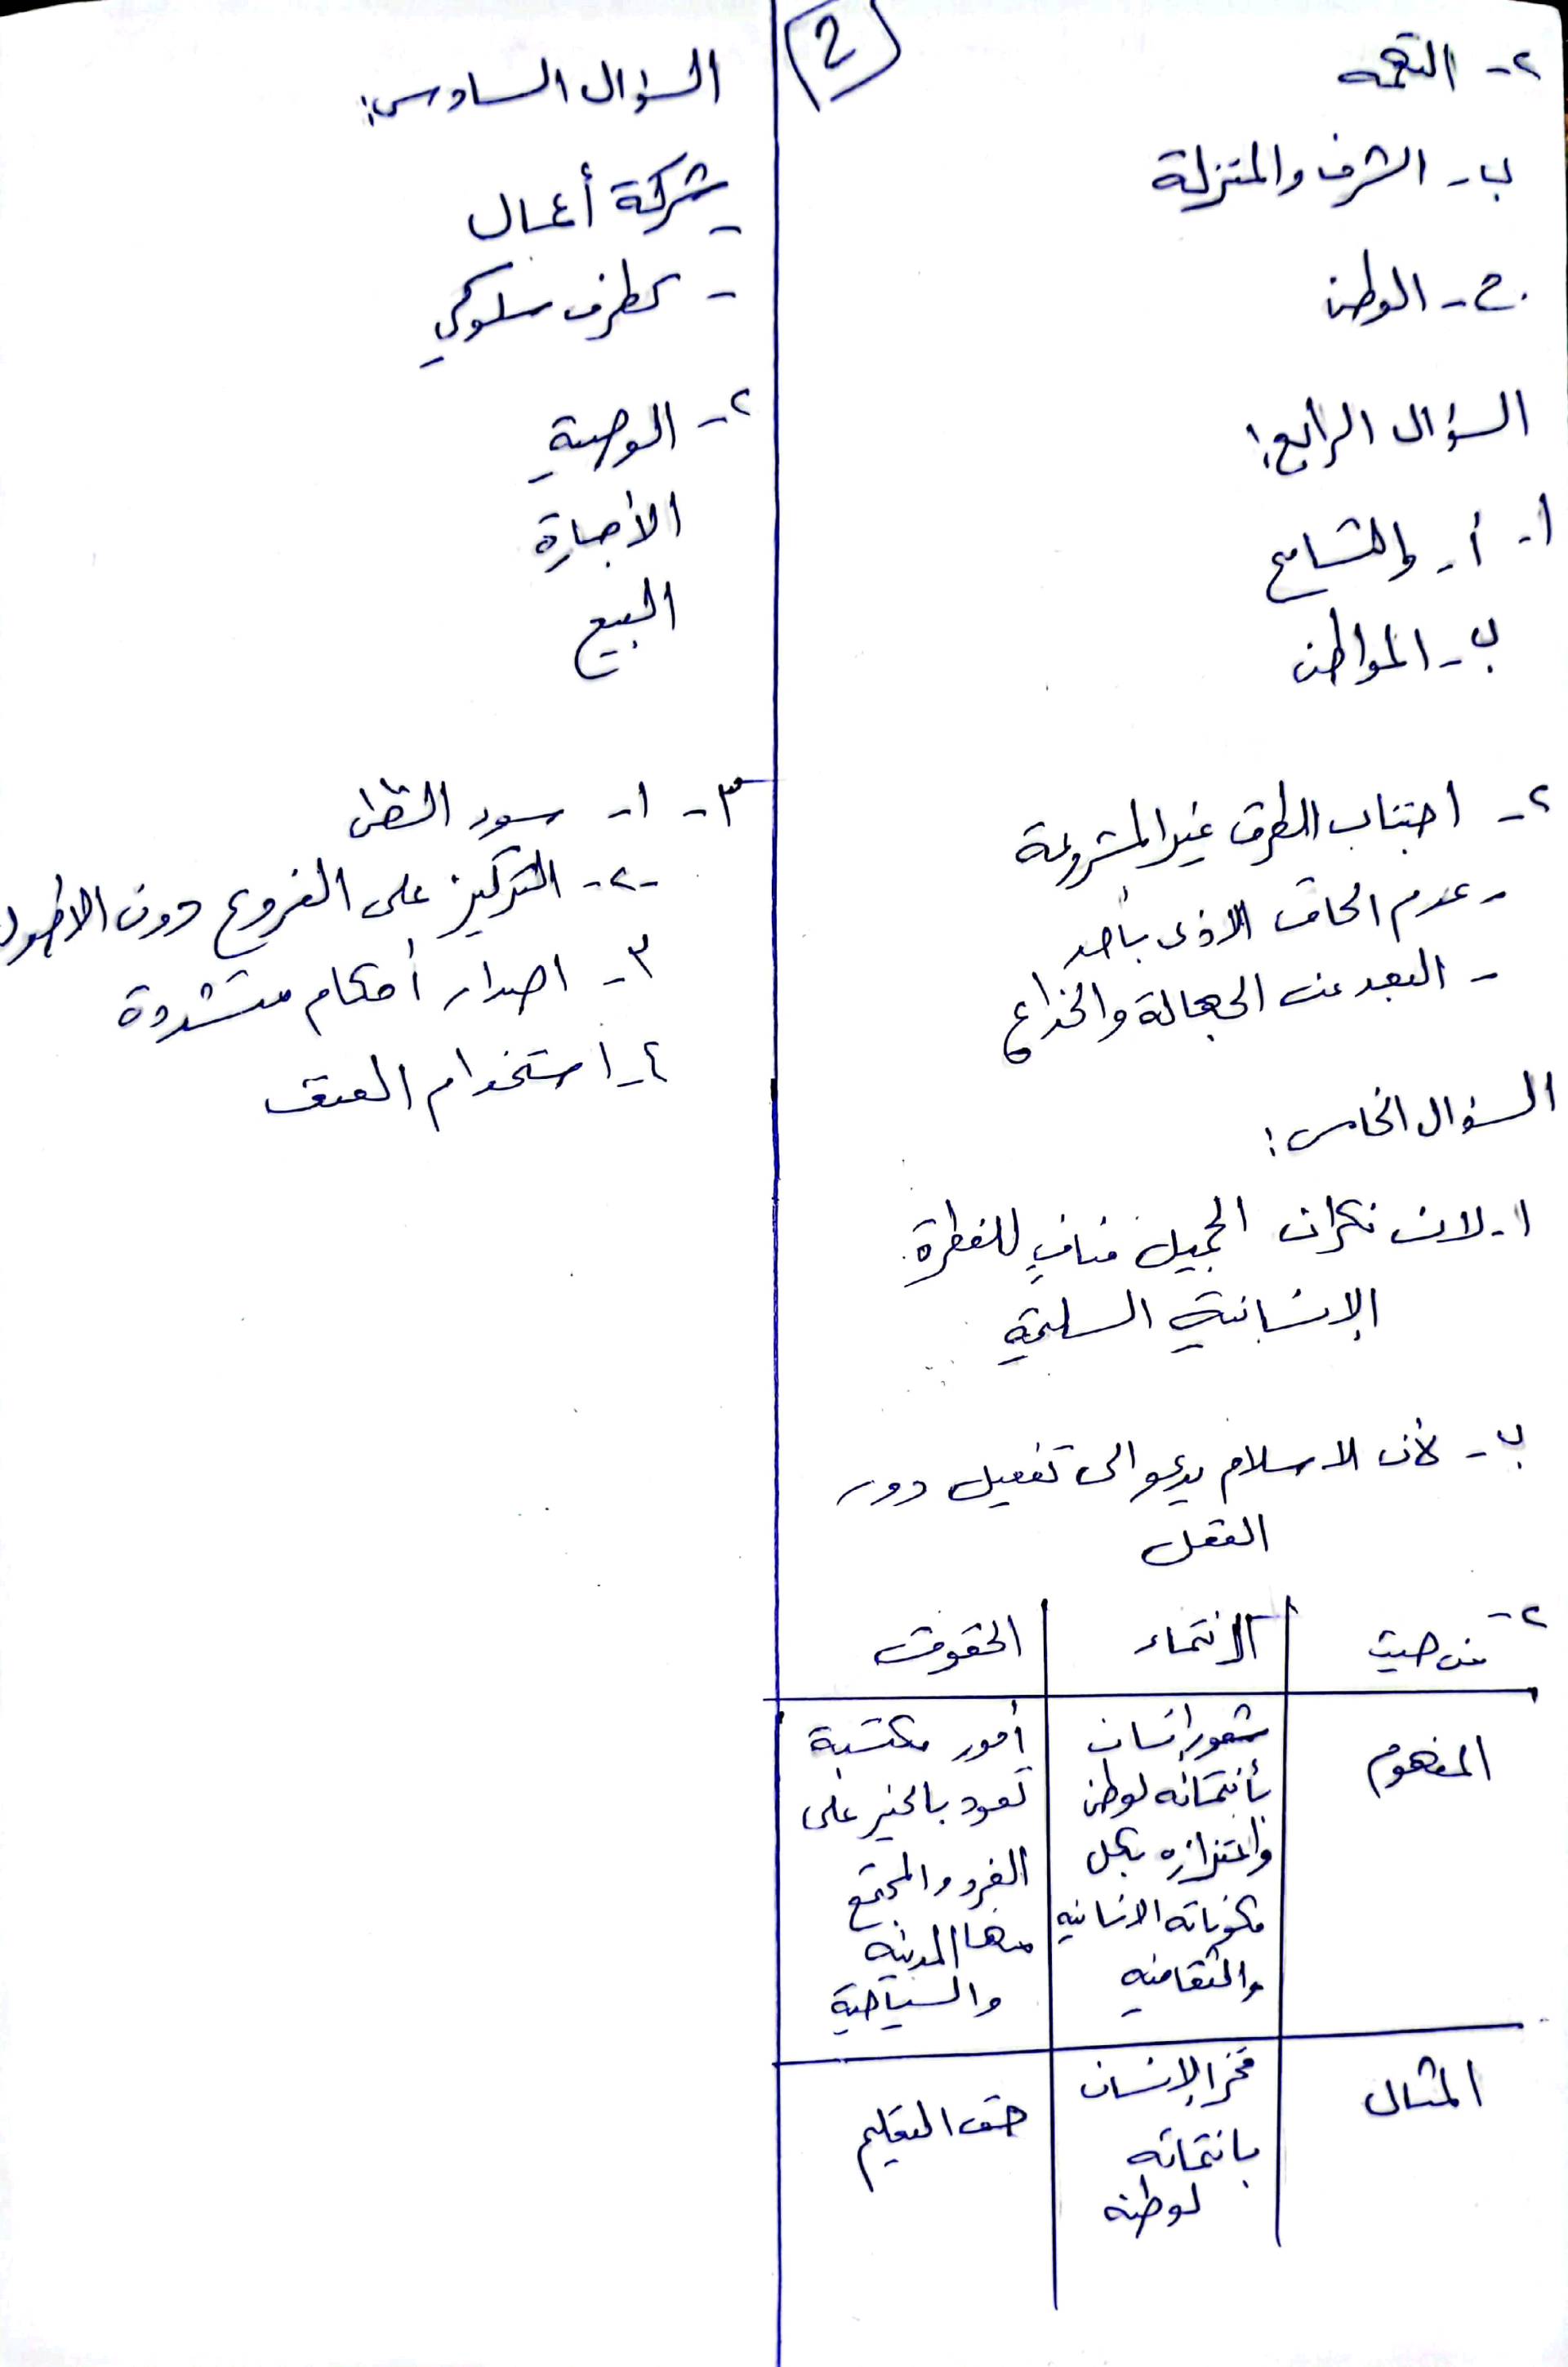 2
٢- التهمه
ب- الشرف والمنزلة
ج- الوطن
السؤال الرابع:
١- أ- والتسامح
ب- المواطن
٢- اجتناب الطرق غير المشروعة
- عدم الحاق الاذى بأحد
- البعد عن الجهالة والخداع
السؤال الخامس:
١- لان نكران الجميل منافٍ للفطرة
الإنسانية السليمة
ب- لأن الاسلام يدعو الى تفعيل دور
العقل
٢- من حيث | الانتماء | الحقوق
المفهوم | شعور انسان | أمور مكتسبة
بأنتمائه لوطن | تعود بالخير على
واعتزازه بكل | الفرد والمجتمع
مكوناته الانسانيه | منها المدنيه
والثقافيه | والسياحية
المثال | فخر الإنسان | حق التعليم
بانتمائه
لوطنه
السؤال السادس:
- شركة أعمال
- تطرف سلوكي
٢- الوصية
الأجارة
البيع
٣- ١- سوء الظن
-٢- التركيز على الفروع دون الاصول
٣- اصدار أحكام متشددة
٤- استخدام العنف